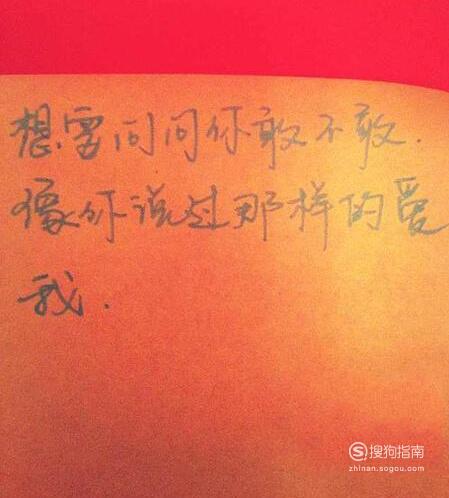 想要问问你敢不敢.
像你说过那样的爱
我.
搜狗指南
zhinan.sogou.com